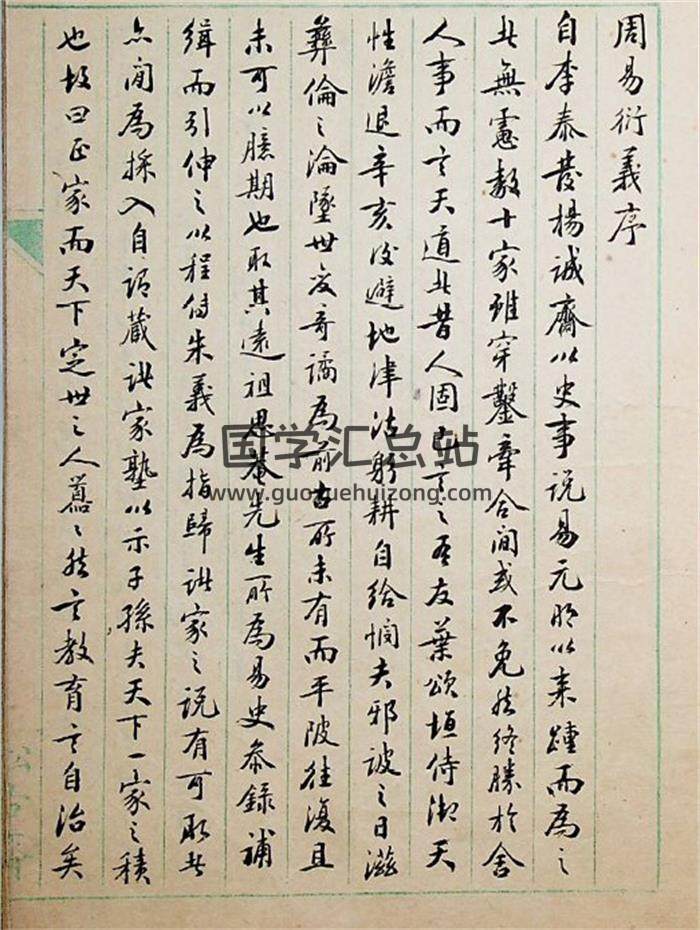 周易衍義序
自李泰發楊誠齋以史事說易元明以來踵而為之
者無慮數十家雖穿鑿牽合間或不免然終勝於舍
人事而言天道者昔人固已言之吾友葉頌垣侍御天
性澹退辛亥後避地津沽躬耕自給憫夫邪詖之日滋
彝倫之淪墜世變奇譎為前古所未有而平陂往復且
未可以臆期也取其遠祖思菴先生所為易史參錄補
緝而引伸之以程傳朱義為指歸諸家之說有可取者
亦間為採入自謂藏諸家塾以示子孫夫天下一家之積
也故曰正家而天下定世之人囂〻然言教育言自治矣
国学汇总站
www.guoxuehuizong.com